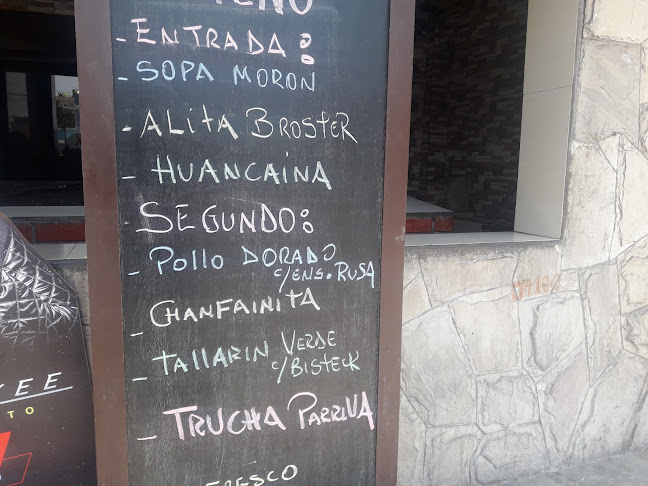 MENÚ
- ENTRADA:
- SOPA MORON
- ALITA BROSTER
- HUANCAINA
SEGUNDO:
- POLLO DORADO
c/ENS. RUSA
- CHANFAINITA
- TALLARIN VERDE
c/BISTECK
- TRUCHA PARRILLA
FRESCO